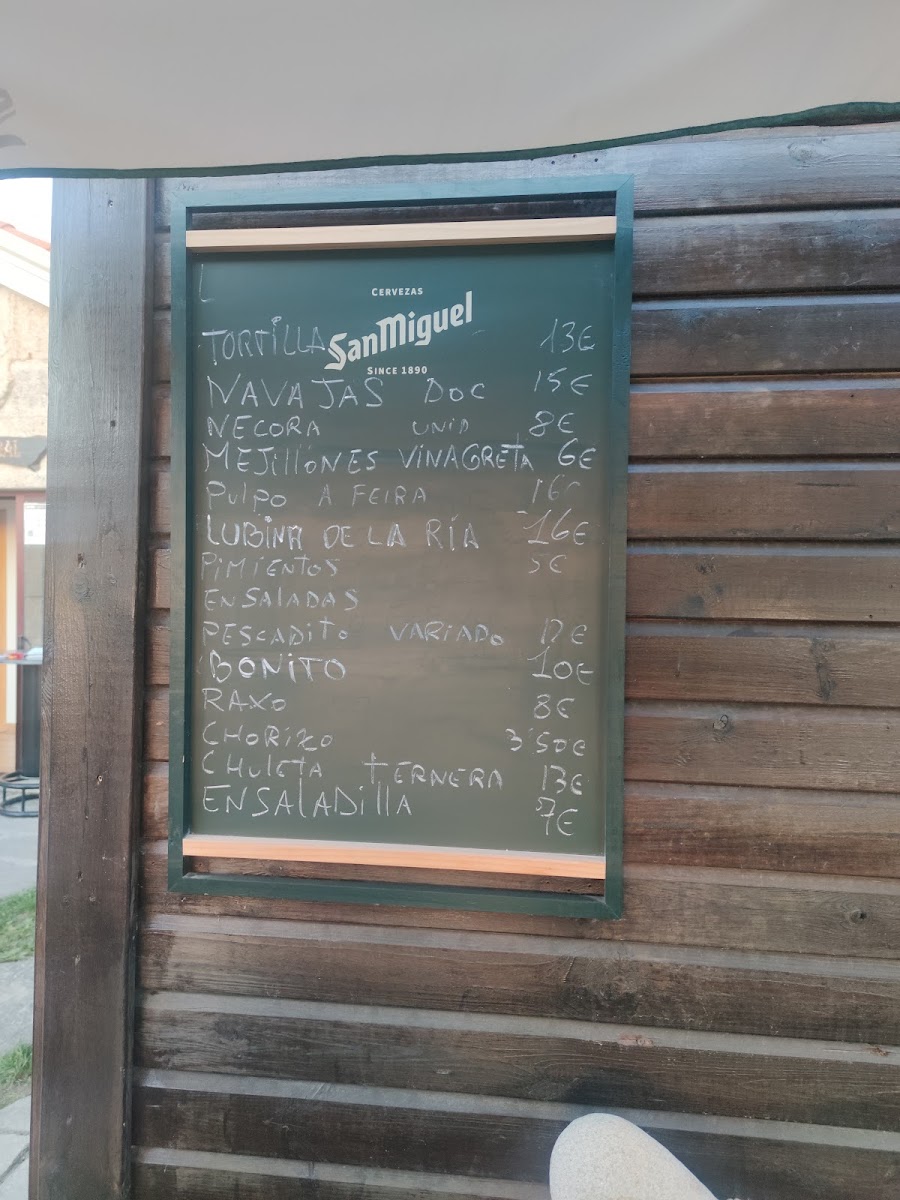 CERVEZAS
SanMiguel
SINCE 1890
TORTILLA 13€
NAVAJAS DOC 15€
NECORA UNID 8€
MEJILLONES VINAGRETA 6€
PULPO A FEIRA
LUBINA DE LA RÍA 16€
PIMIENTOS 5€
ENSALADAS
PESCADITO VARIADO 12€
BONITO 10€
RAXO 8€
CHORIZO 3'50€
CHULETA TERNERA 13€
ENSALADILLA 7€